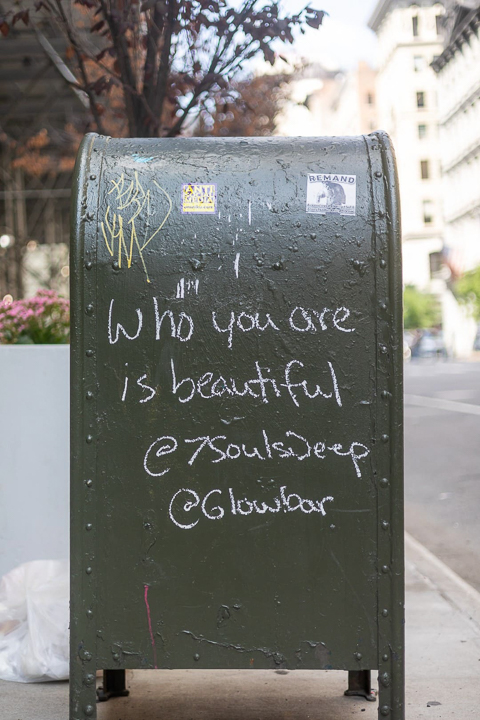 ANTI
REMAND
Who you are
is beautiful
@7SoulsDeep
@Glowbar